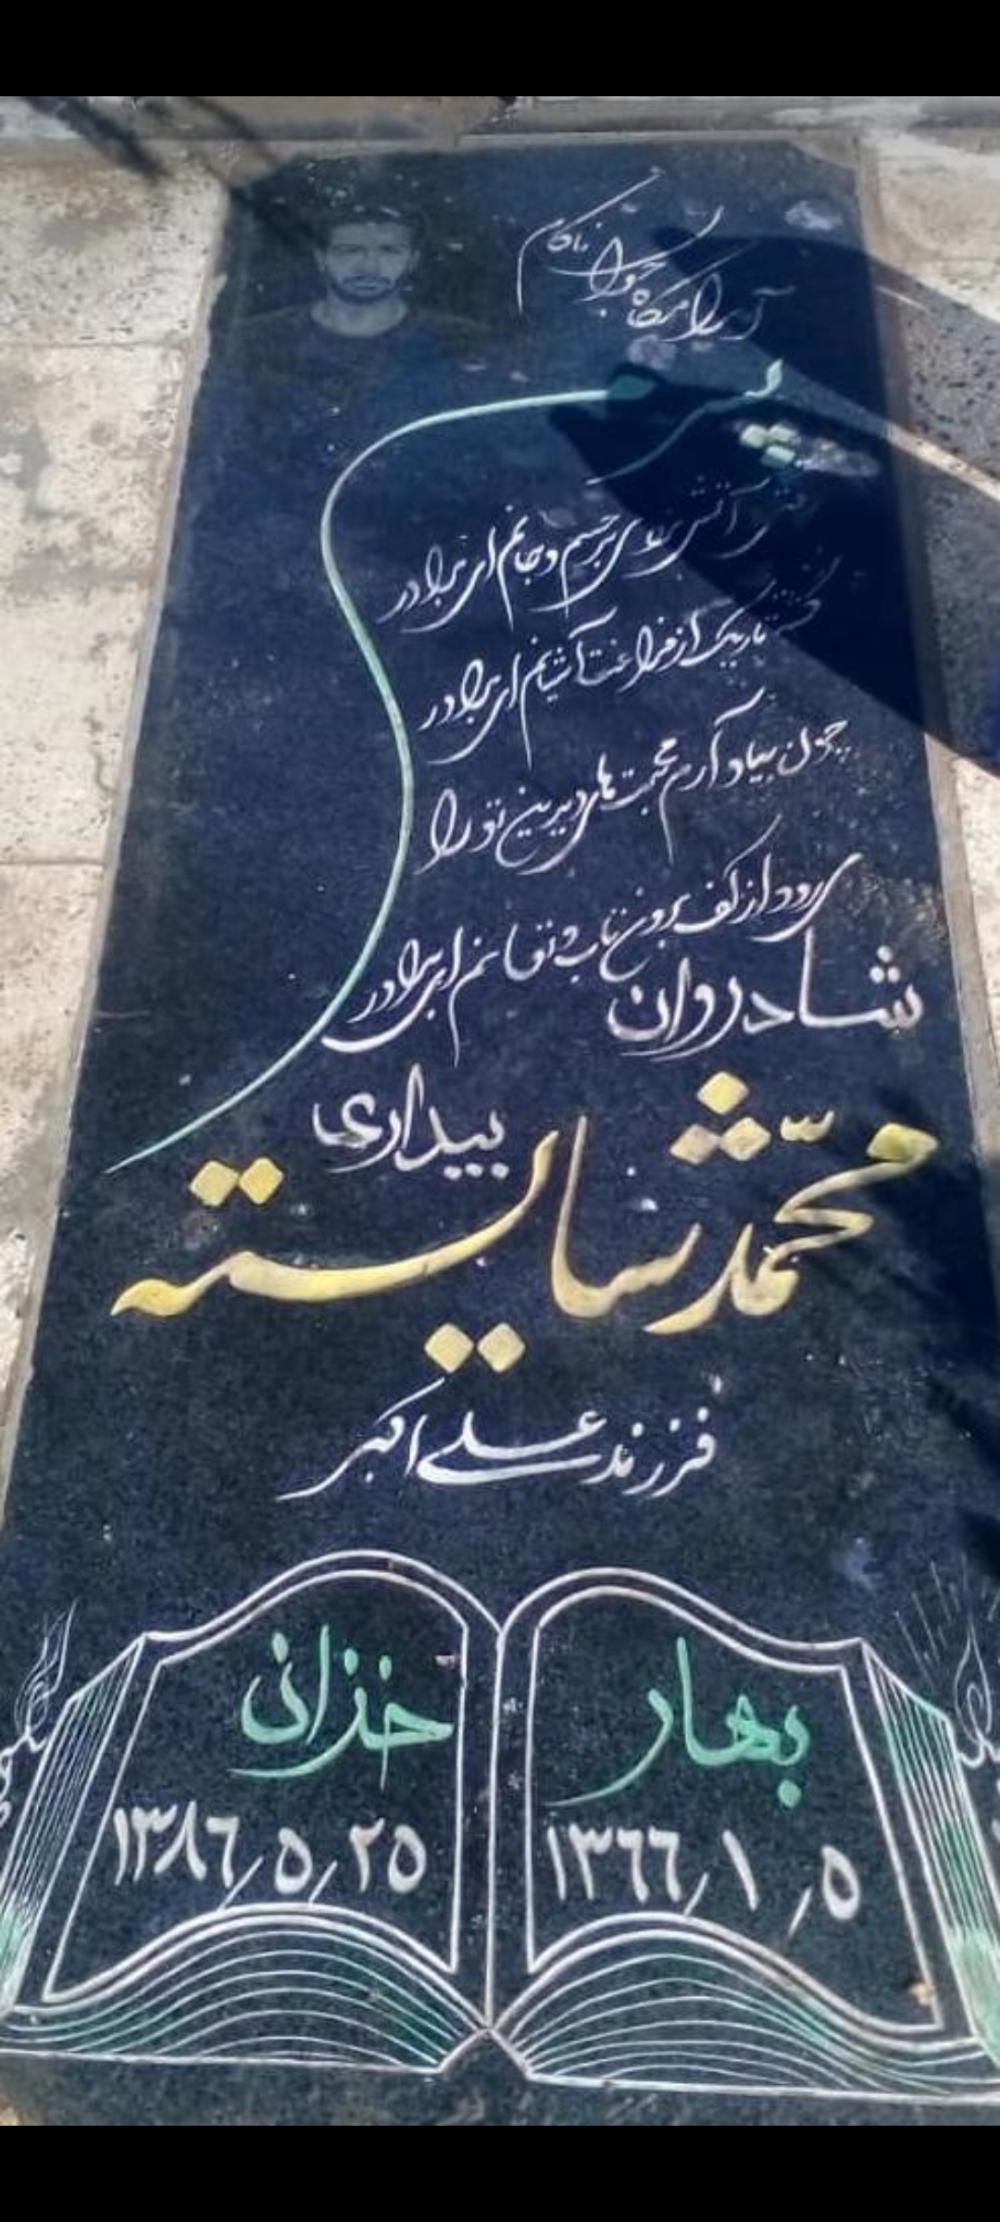 آرامگاه جوان ناکام
پسر
آتش بر جسم و جانم ای برادر
تاریک از فراغت آشیانم ای برادر
چون بیاد آرم محبت های دیرین تو را
می رود از کف برون تاب و توانم ای برادر
شادروان
محمّد شایسته
بیداری
فرزند علی اکبر
بهار
۱۳۶۶/۱/۵
خزان
۱۳۸۶/۵/۲۵